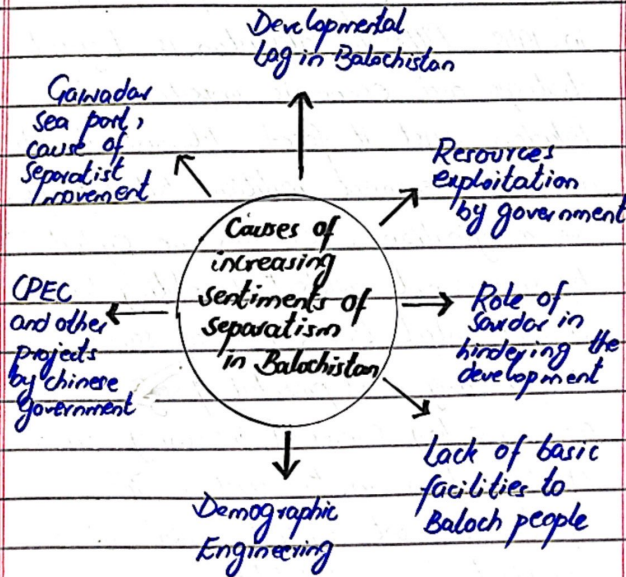 Developmental
Lag in Balochistan
Gawadar
sea port,
cause of
separatist
movement
Resources
exploitation
by government
Causes of
increasing
sentiments of
separatism
in Balochistan
CPEC
and other
projects
by chinese
government
Role of
sardar in
hindering the
development
Lack of basic
facilities to
Baloch people
Demographic
Engineering